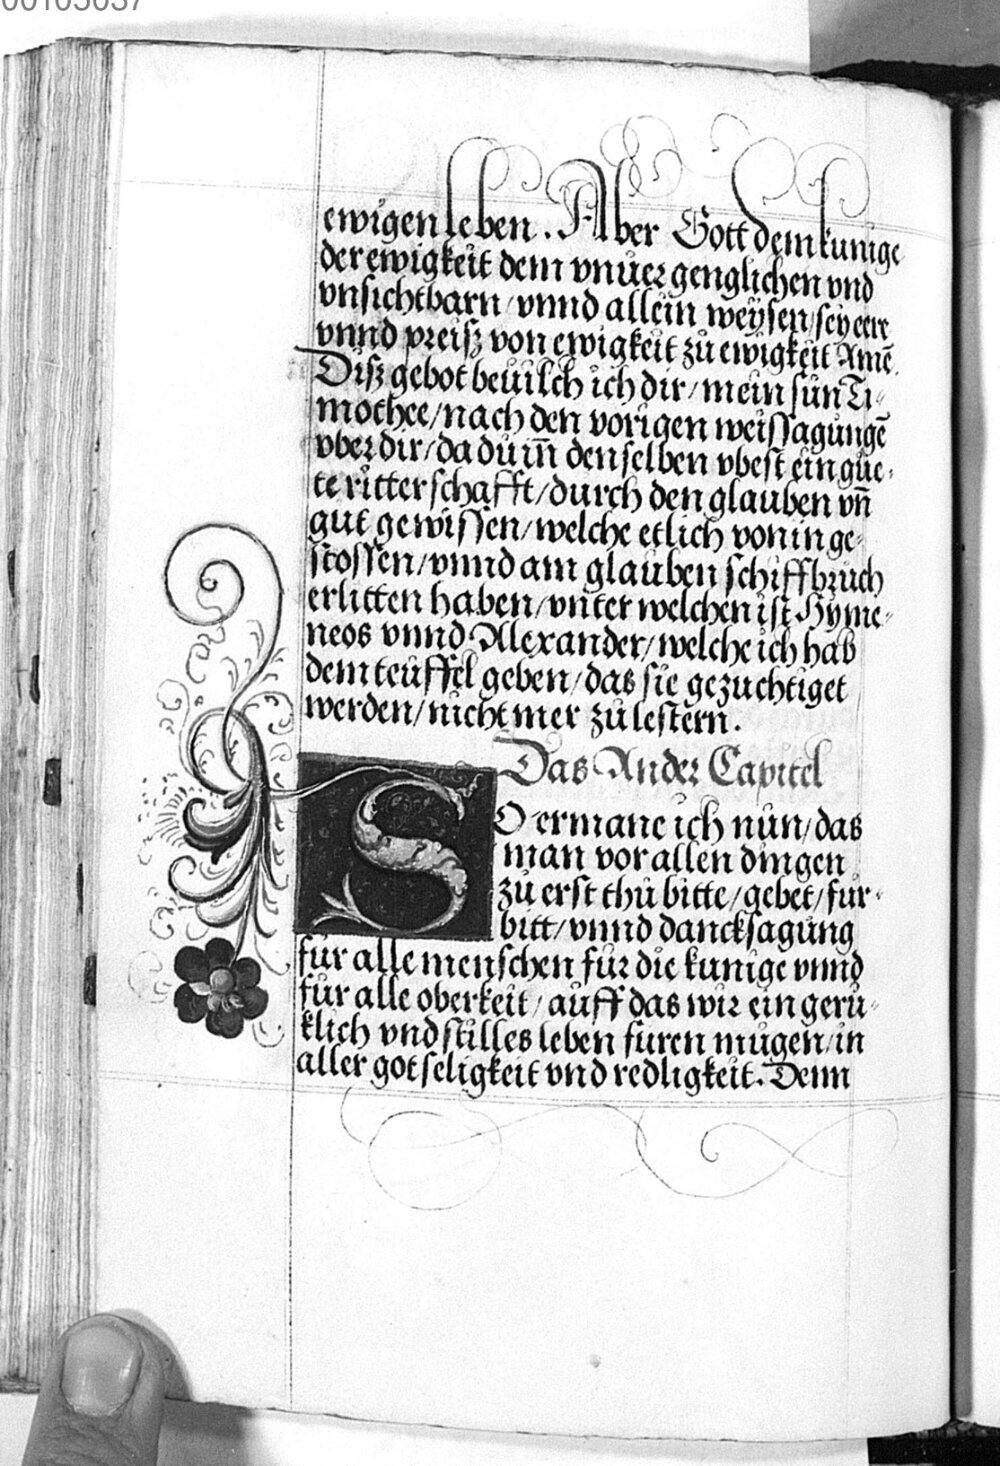 00105037
ewigen leben. Aber Gott dem kunige
der ewigkeit dem vnuer genglichen vnd
vnsichtbarn/vnnd allein weysen/sey eere
vnnd preisz von ewigkeit zů ewigkeit Amē.
Disz gebot beuilch ich dir/mein sůn Ti-
mothee/nach den vorigen weissagungē
vber dir/da dů in̄ denselben vbest ein gůe-
te ritterschafft/durch den glauben vn̄
gut gewissen/welche etlich von in ge-
stossen/vnnd am glauben schiffbruch
erlitten haben/vnter welchen ist Hyme-
neos vnnd Alexander/welche ich hab
dem teuffel geben/das sie gezuchtiget
werden/nicht mer zů lestern.
Das Ander Capitel
SO ermane ich nun/das
man vor allen dingen
zů erst thů bitte/gebet/fur-
bitt/vnnd dancksagung
für alle menschen für die kunige vnnd
für alle oberkeit/auff das wir ein gerů-
klich vnd stilles leben furen mugen/in
aller gotseligkeit vnd redligkeit. Denn